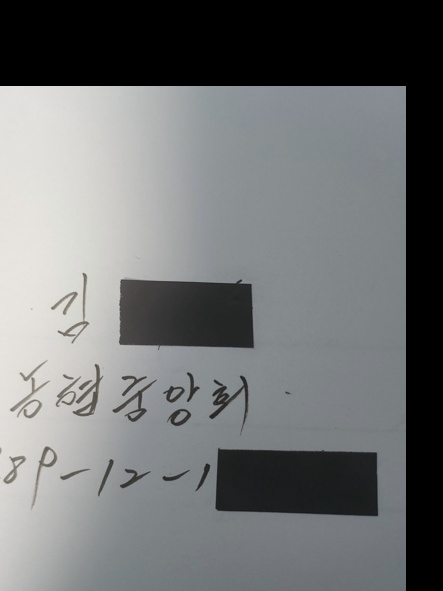 김
농협중앙회
89-12-1